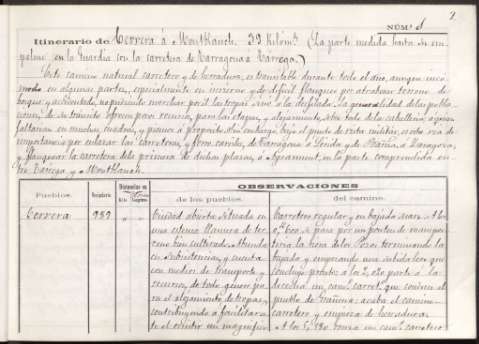 2
NÚM.º 1
Itinerario de Cervera á Montblanch. 39 Kilóm.s (La parte medida hasta su em-
palme en la Guardia con la carretera de Tarragona á Tárrega.)
Este camino natural carretero y de herradura, es transitable durante todo el año, aunque incó-
modo en algunas partes, especialmente en invierno y de difícil flanqueo por atravesar terreno de
bosque y accidentado, no pudiendo marchar por él las tropas sino á la desfilada. La generalidad de las pobla-
ciones, de su tránsito ofrecen poco recurso, para las etapas, y alojamiento, sobre todo de la caballería á quien
faltarían en muchas cuadras, y piensos á propósito. Sin embargo, bajo el punto de vista militar, es esta vía de
importancia por enlazar las carreteras, y ferro-carriles, de Tarragona á Lérida y de Barna. á Zaragoza,
y flanquear la carretera de la primera de dichas plazas, á Agramunt, en la parte comprendida en-
tre Tárrega, y Montblanch.
OBSERVACIONES
Pueblos.
Vecindario.
Distancias en
de los pueblos.
del camino.
Cervera
989
" "
Ciudad abierta situada en
una extensa llanura de ter-
reno bien cultivado. Abunda
en subsistencias, y cuenta
con medios de transporte y
recursos, de todo género para
en el alojamiento de tropas,
contribuyendo á facilitar
te el existir un magnífico
Carretera regular y en bajada suave. A los
0,k 600, se pasa por un pontón de mampos-
tería la riera de los Pozos terminando la
bajada y empezando una subida leve que
concluye pronto: á los 2, 250 parte á la
derecha un camo. carretº. que conduce al
pueblo de Grañena: acaba el camino
carretero y empieza de herradura.
A los 5, 980 cruza un camo. carretero